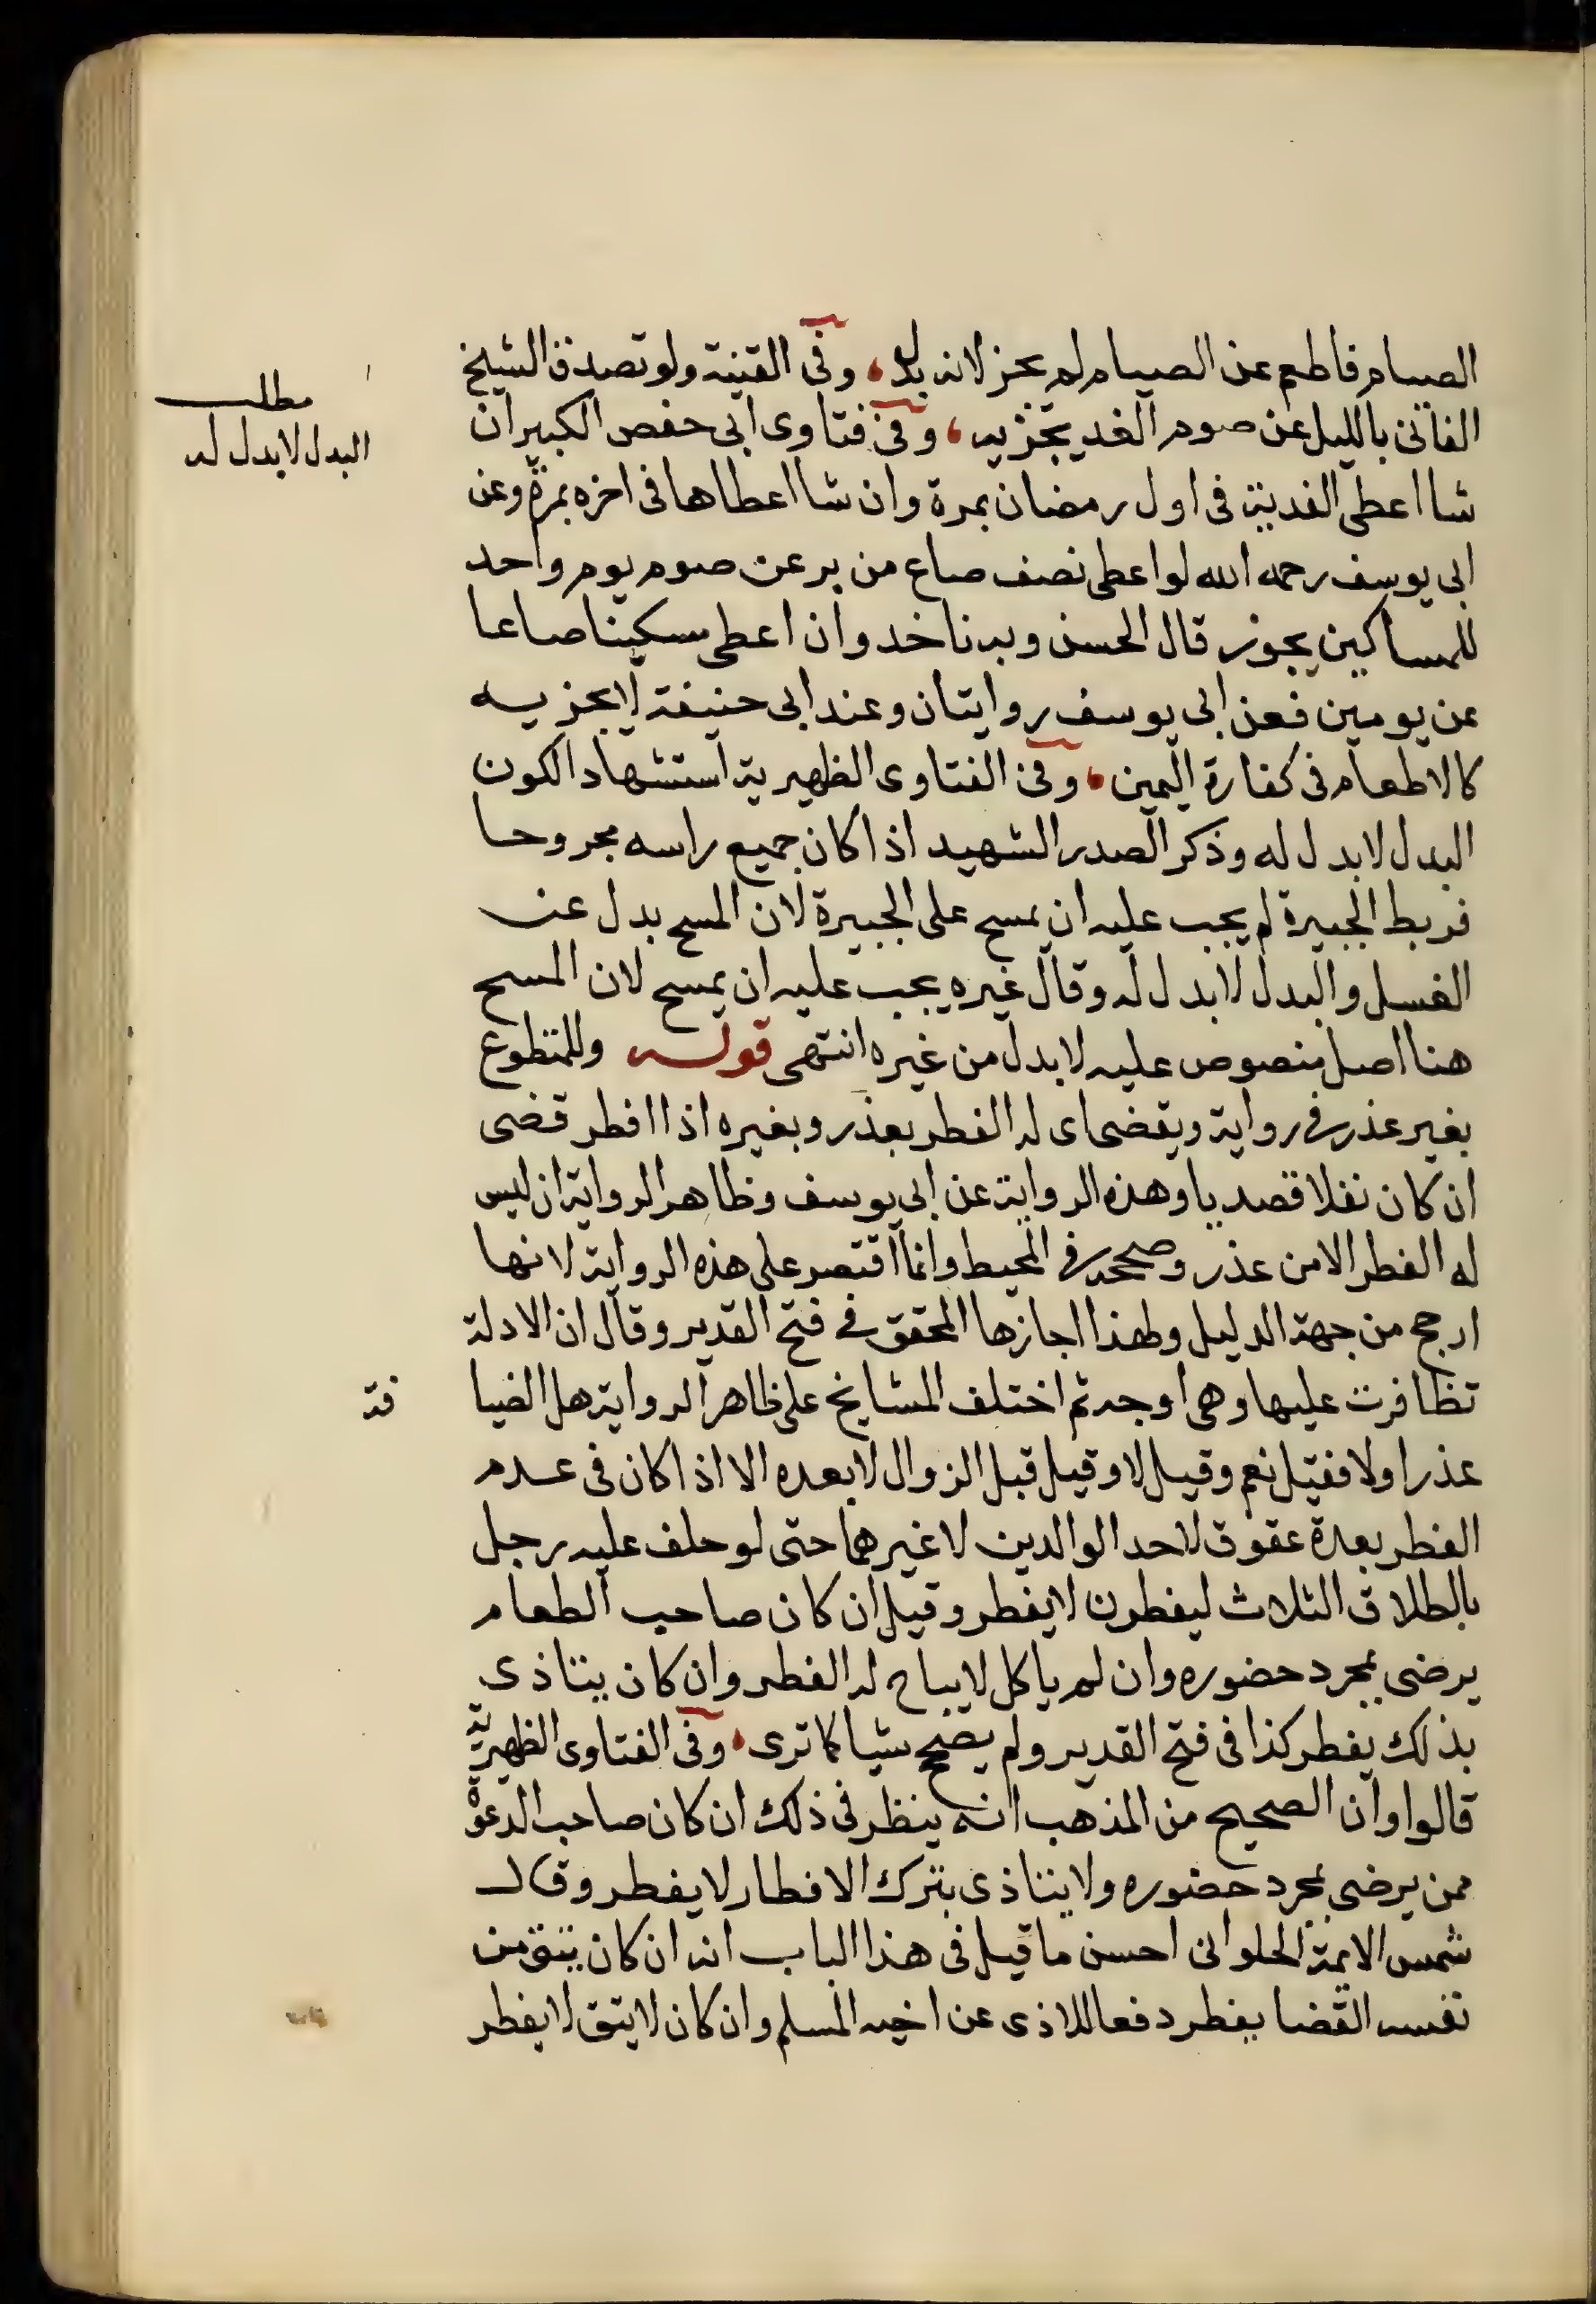 الصيام فاطعم عن الصيام لم يجز لانه بدل، وفى القنية ولو تصدق الشيخ
الفانى بالليل عن صوم الغد يجزيه، وفى فتاوى ابى حفص الكبير ان
شا اعطى الفدية فى اول رمضان بمرة وان شا اعطاها فى اخره بمرة وعن
ابى يوسف رحمه الله لو اعطى نصف صاع من بر عن صوم يوم واحد
للمساكين يجوز قال الحسن وبه ناخد وان اعطى مسكينا صاعا
عن يومين فعن ابى يوسف روايتان وعند ابى حنيفة لا يجزيه
كالاطعام فى كفارة اليمين، وفى الفتاوى الظهيرية استشهاد الكون
البدل لا بدل له وذكر الصدر الشهيد اذا كان جميع راسه مجروحا
فربط الجبيرة لم يجب عليه ان يمسح على الجبيرة لان المسح بدل عن
الغسل والبدل لا بدل له وقال غيره يجب عليه ان يمسح لان المسح
هنا اصل منصوص عليه لا بدل من غيره انتهى قوله وللمتطوع
بغير عذر فى رواية ويقضى اى له الفطر بعذر وبغيره اذا افطر قضى
ان كان نفلا قصديا وهذه الرواية عن ابى يوسف وظاهر الرواية ان ليس
له الفطر الا من عذر وصححه فى المحيط وانما اقتصر على هذه الرواية لانها
ارجح من جهة الدليل ولهذا اجازها المحقق فى فتح القدير وقال ان الادلة
تظافرت عليها وهى اوجه ثم اختلف المشايخ على ظاهر الرواية هل الضيا فة
عذر اولا فقيل نعم وقيل لا وقيل قبل الزوال لا بعده الا اذا كان فى عدم
الفطر بعدة عقوق لاحد الوالدين لا غيرهما حتى لو حلف عليه رجل
بالطلاق الثلاث ليفطرن لا يفطر وقيل ان كان صاحب الطعام
يرضى بمجرد حضوره وان لم ياكل لا يباح له الفطر وان كان يتاذى
بذلك يفطر كذا فى فتح القدير ولم يصحح شيا كما ترى، وفى الفتاوى الظهيرية
قالوا وان الصحيح من المذهب انه ينظر فى ذلك ان كان صاحب الدعوة
ممن يرضى بمجرد حضوره ولا يتاذى بترك الافطار لا يفطر وقال
شمس الايمة الحلوانى احسن ما قيل فى هذا الباب انه ان كان يثق من
نفسه القضا يفطر دفعا للاذى عن اخيه المسلم وان كان لا يثق لا يفطر
مطلب
البدل لا بدل له